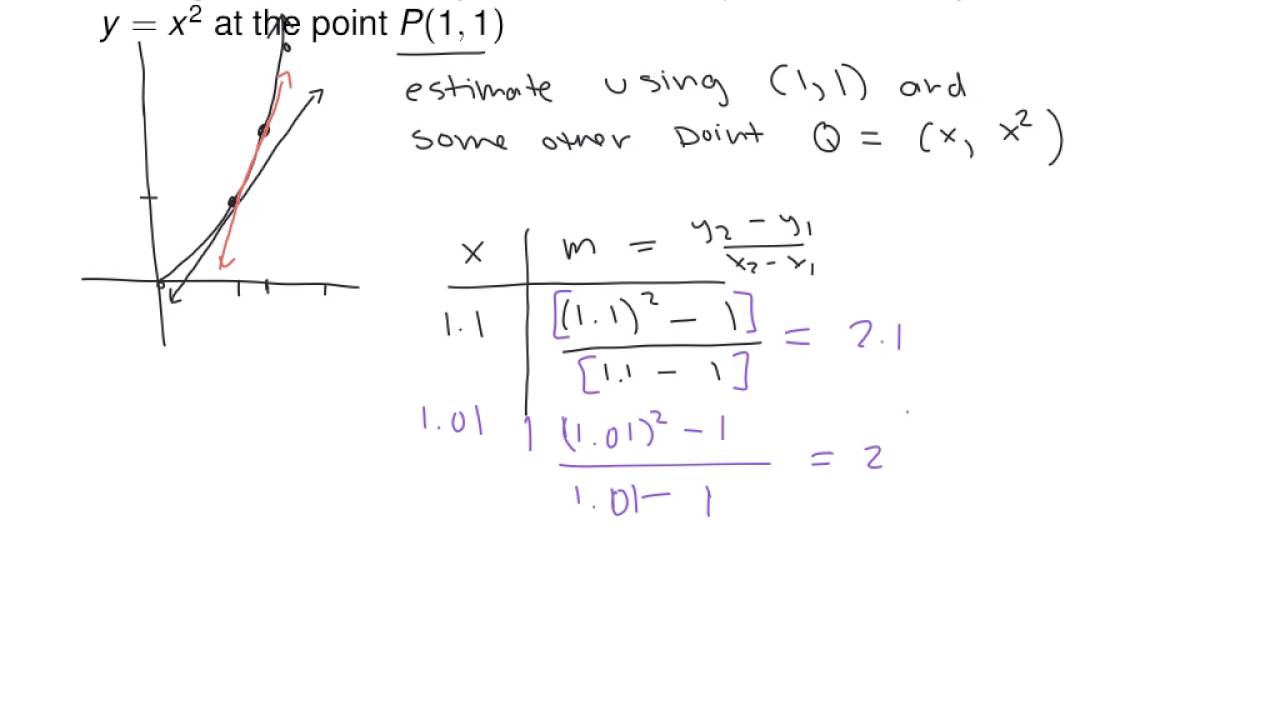 y = x² at the point P(1, 1)
estimate using (1,1) and
some other point Q = (x, x²)
x m = y₂ - y₁ / x₂ - x₁
1.1 [(1.1)² - 1] / [1.1 - 1] = 2.1
1.01 (1.01)² - 1 / 1.01 - 1 = 2